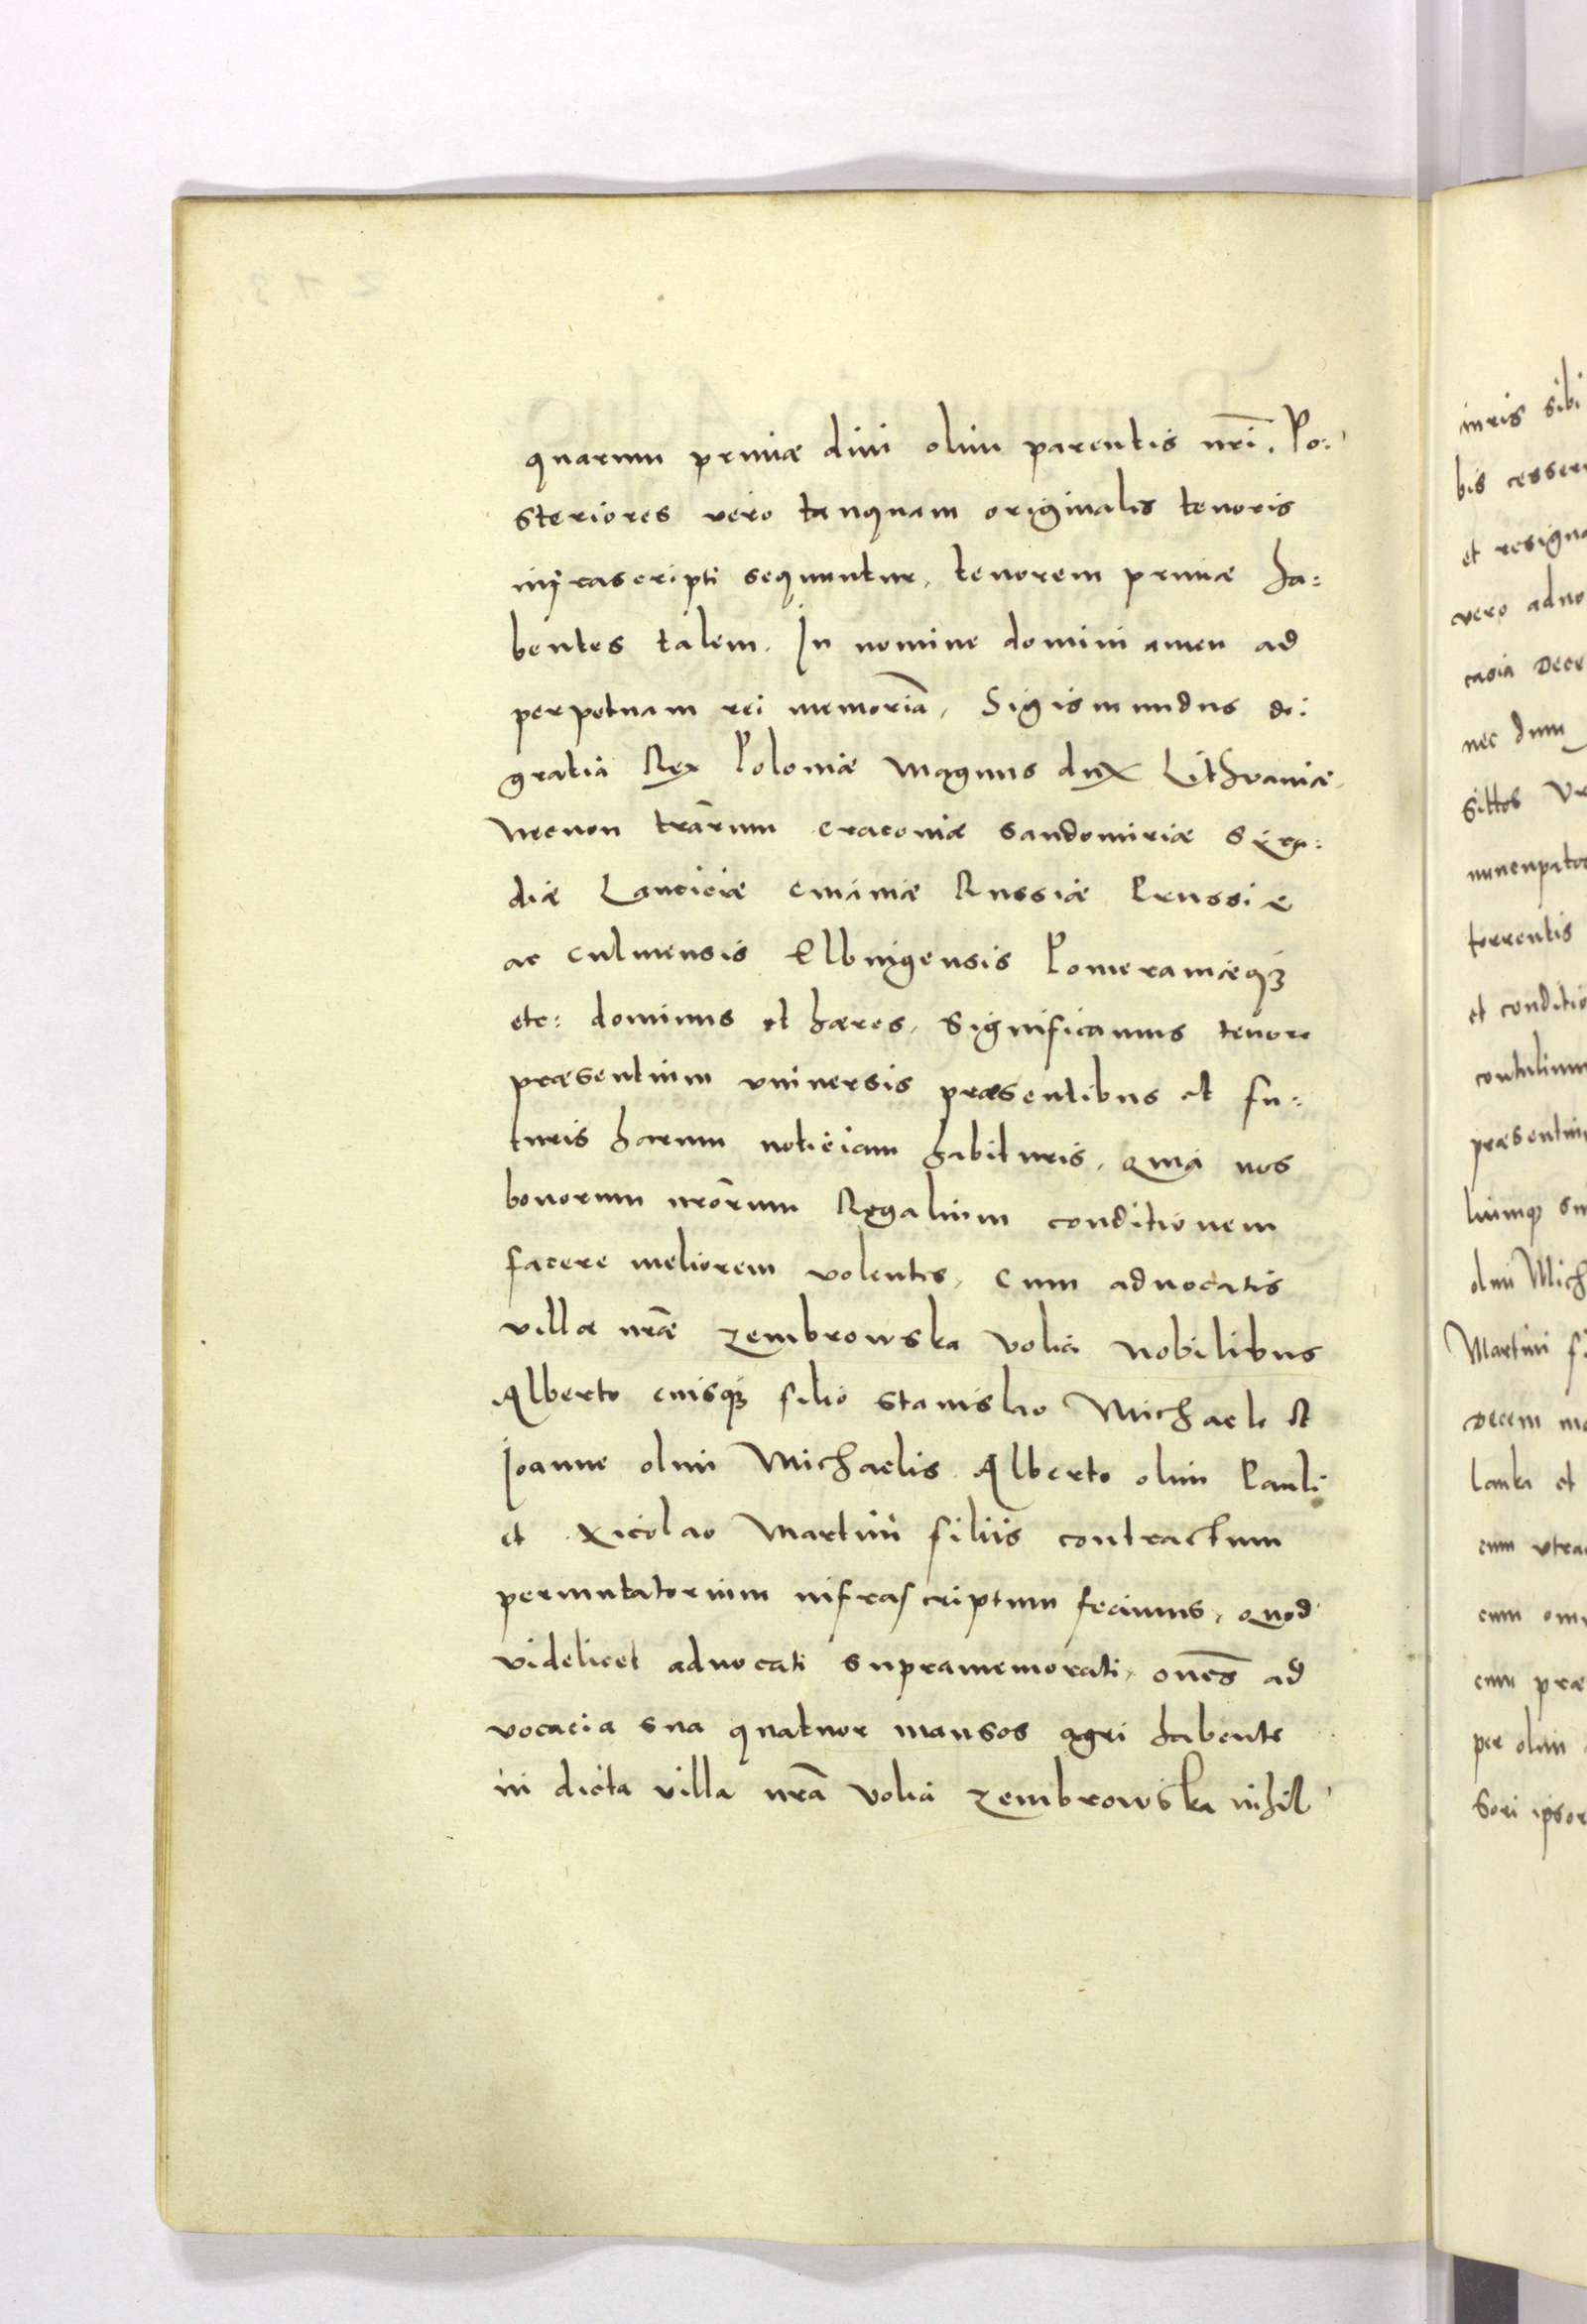 quarum primæ divi olim parentis nr̄i. Po:
steriores vero tanquam originalis tenoris
infrascripti sequuntur, tenorem primæ ha:
bentes talem. In nomine domini amen ad
perpetuam rei memoriā, Sigismundus dei
gratia Rex Poloniæ magnus dux Lithvaniæ,
necnon trār̄um Cracoviæ Sandomiriæ Syra:
diæ Lanciciæ Cuiaviæ Russiæ Prussiæ
ac Culmensis Elbingensis Pomeraniæq3
etc: dominus et hæres, Significamus tenore
præsentium vniuersis præsentibus et fu:
turis harum noticiam habituris, Quia nos
bonorum nrōrum Regalium conditionem
facere meliorem volentes, Cum aduocatis
villæ nrāe Zembrowska Volia Nobilibus
Alberto eiusq3 filio Stanislao Michaele et
Joanne olim Michaelis Alberto olim Pauli
et Nicolao Martini filiis contractum
permutatorium infrascriptum fecimus, Quod
videlicet aduocati supramemorati, omēs ad
vocacia sua quatuor mansos agri habente
in dicta villa nrā Volia Zembrowska nihil
iuris sibi
bis cesser
et resigna
vero aduo
cacia Dece
nec dum
sittos Vr
nuncupato
torrentis
et conditio
contulimu
præsentiu
liumq su
olim Mich
Martini fi
Decem ma
lanka et
cum vtra
cum om
cum præ
per olim
sori ipsor